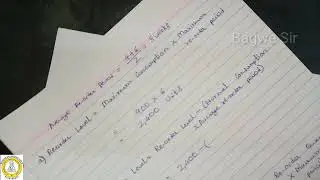 Bagwe Sir
Average Re-order Period = 4+6 / 2 = 5 weeks
a) Re-order Level = Maximum Consumption x Maximum
re-order period
= 400 x 6
= 2,400 Units
Level = Re-order Level - (Normal Consumption
x Average re-order period)
= 2,400 - (
Re-order
x Minimum